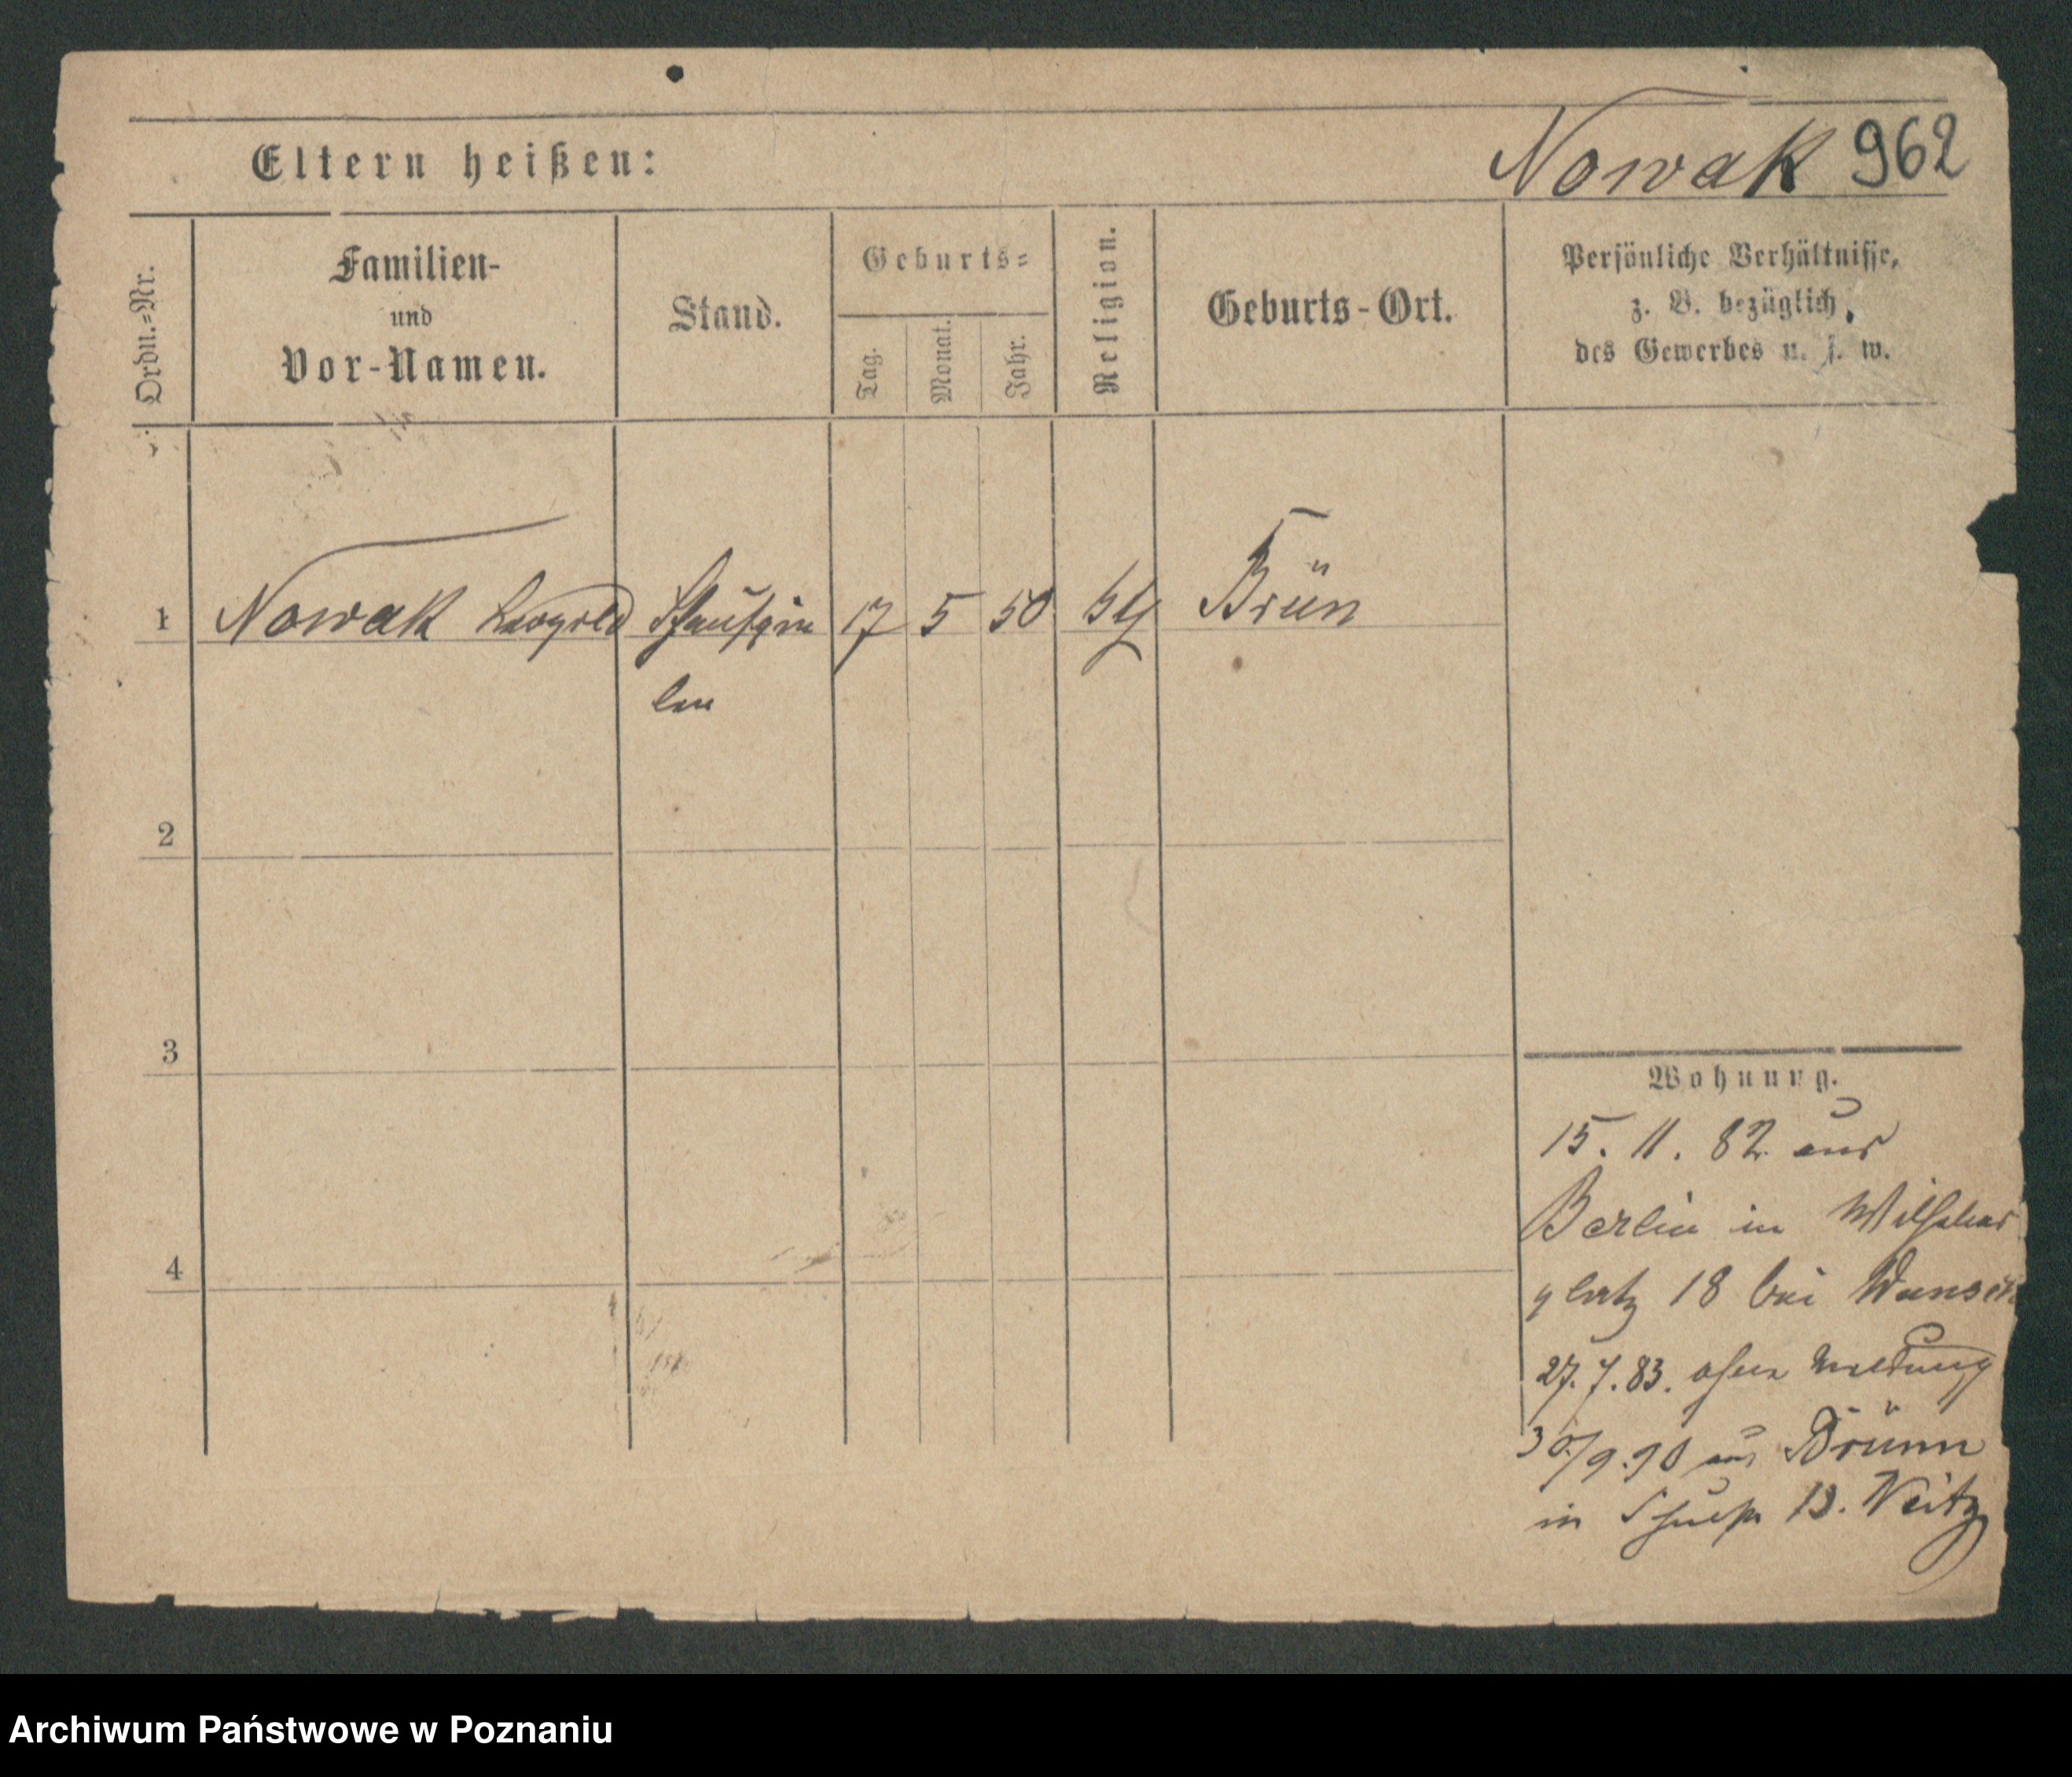 Eltern heißen:
Nowak 962
Ordn.=Nr.
Familien-
und
Vor-Namen.
Stand.
Geburts=
Tag.
Monat.
Jahr.
Religion.
Geburts-Ort.
Persönliche Verhältnisse,
z. B. bezüglich
des Gewerbes u. s. w.
1 Nowak Leopold Schauspie 17 5 50 kth Brün
ler
2
3
4
Wohnung.
15. 11. 82 aus
Berlin in Wilhelms
platz 18 bei
27. 7. 83. ohne Meldung
30/9. 90 aus Brünn
in 13. Veitz
Archiwum Państwowe w Poznaniu